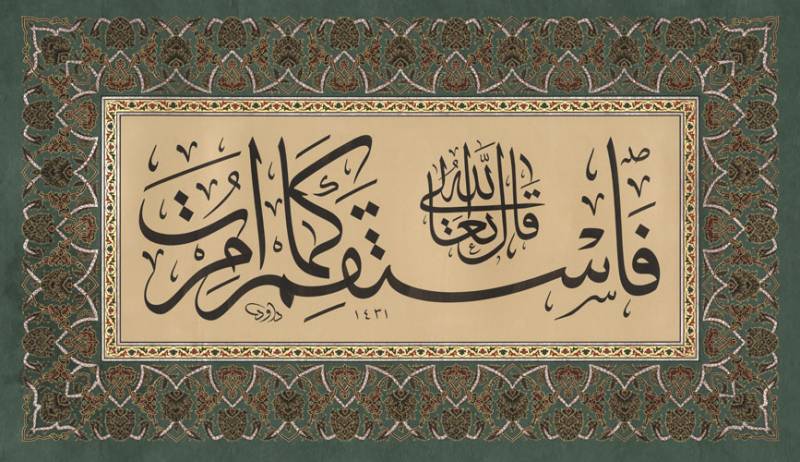 قَالَ اللهُ تَعَالَى
فَاسْتَقِمْ كَمَا أُمِرْتَ
داود
١٤٣١